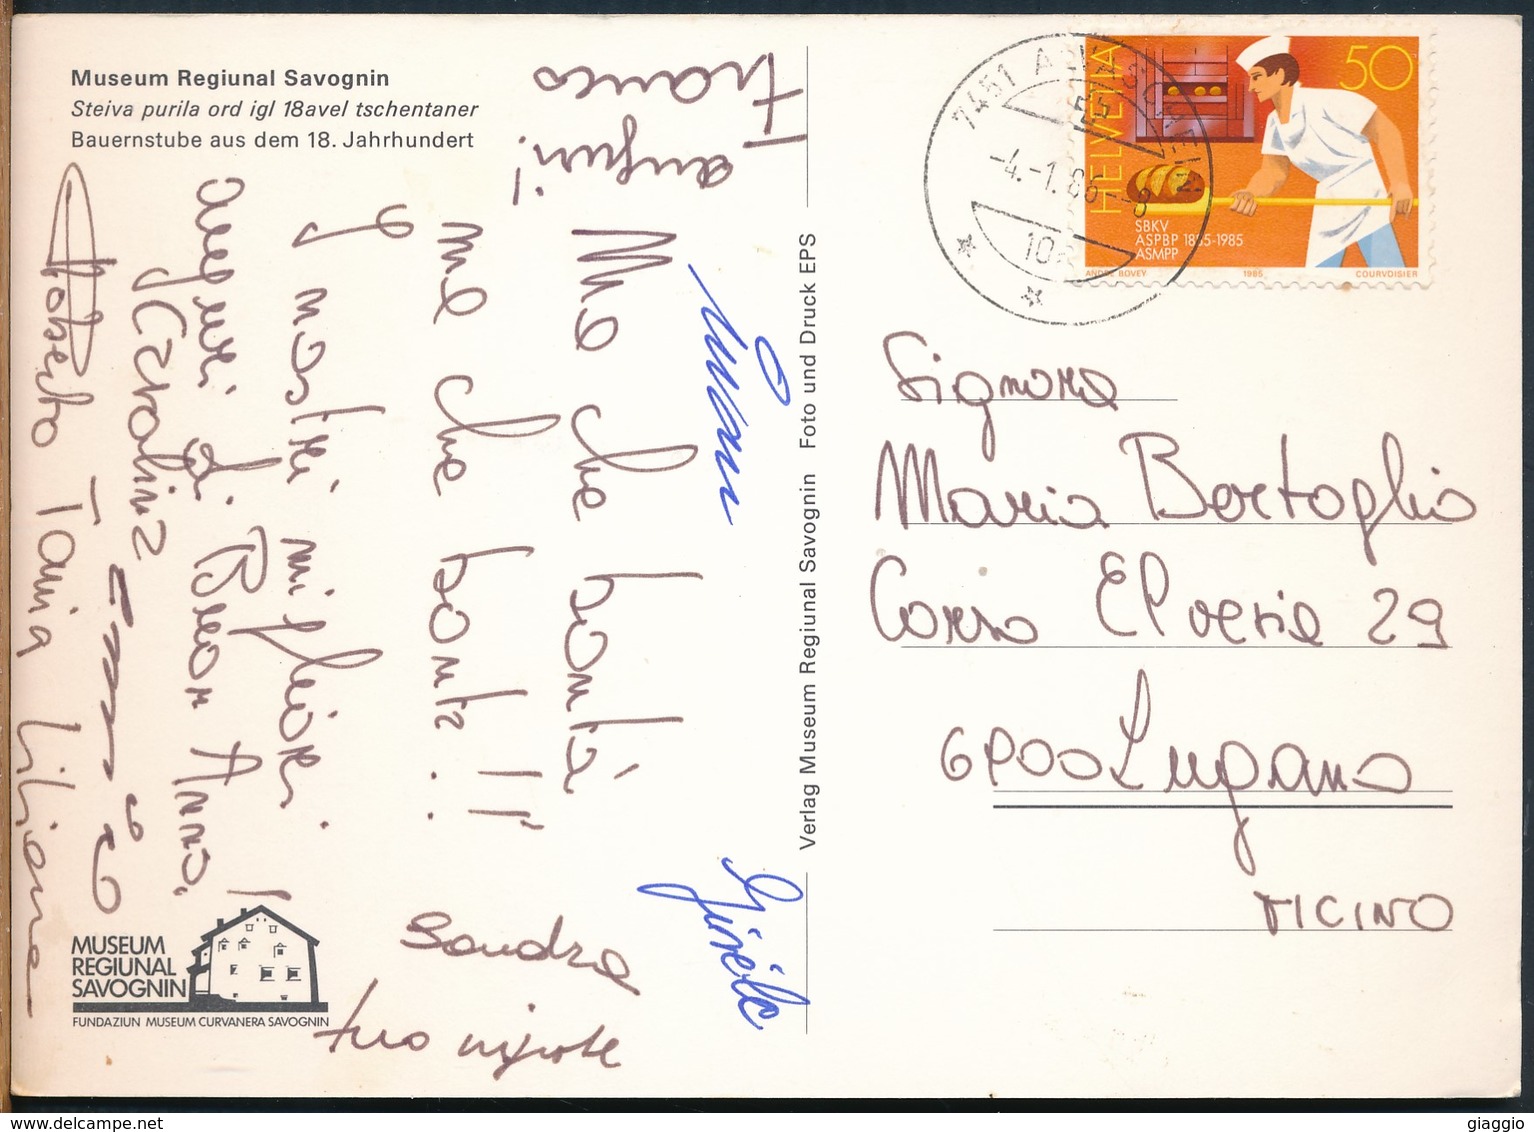 Museum Regiunal Savognin
Steiva purila ord igl 18avel tschentaner
Bauernstube aus dem 18. Jahrhundert
Franco
auguri!
Ma che bontà
ma che bontà!!
I nostri migliori
auguri di Buon Anno!
Carolina
Roberto Tania Liliana
Sandra
tuo nipote
MUSEUM
REGIUNAL
SAVOGNIN
FUNDAZIUN MUSEUM CURVANERA SAVOGNIN
Verlag Museum Regiunal Savognin Foto und Druck EPS
7451
-4.-1.86--8
HELVETIA
50
SBKV
ASPBP 1885-1985
ASMPP
ANDRÉ BOVEY 1985 COURVOISIER
Signora
Maria Bortoglio
Corso Elvezia 29
6900 Lugano
TICINO
www.delcampe.net
giaggio